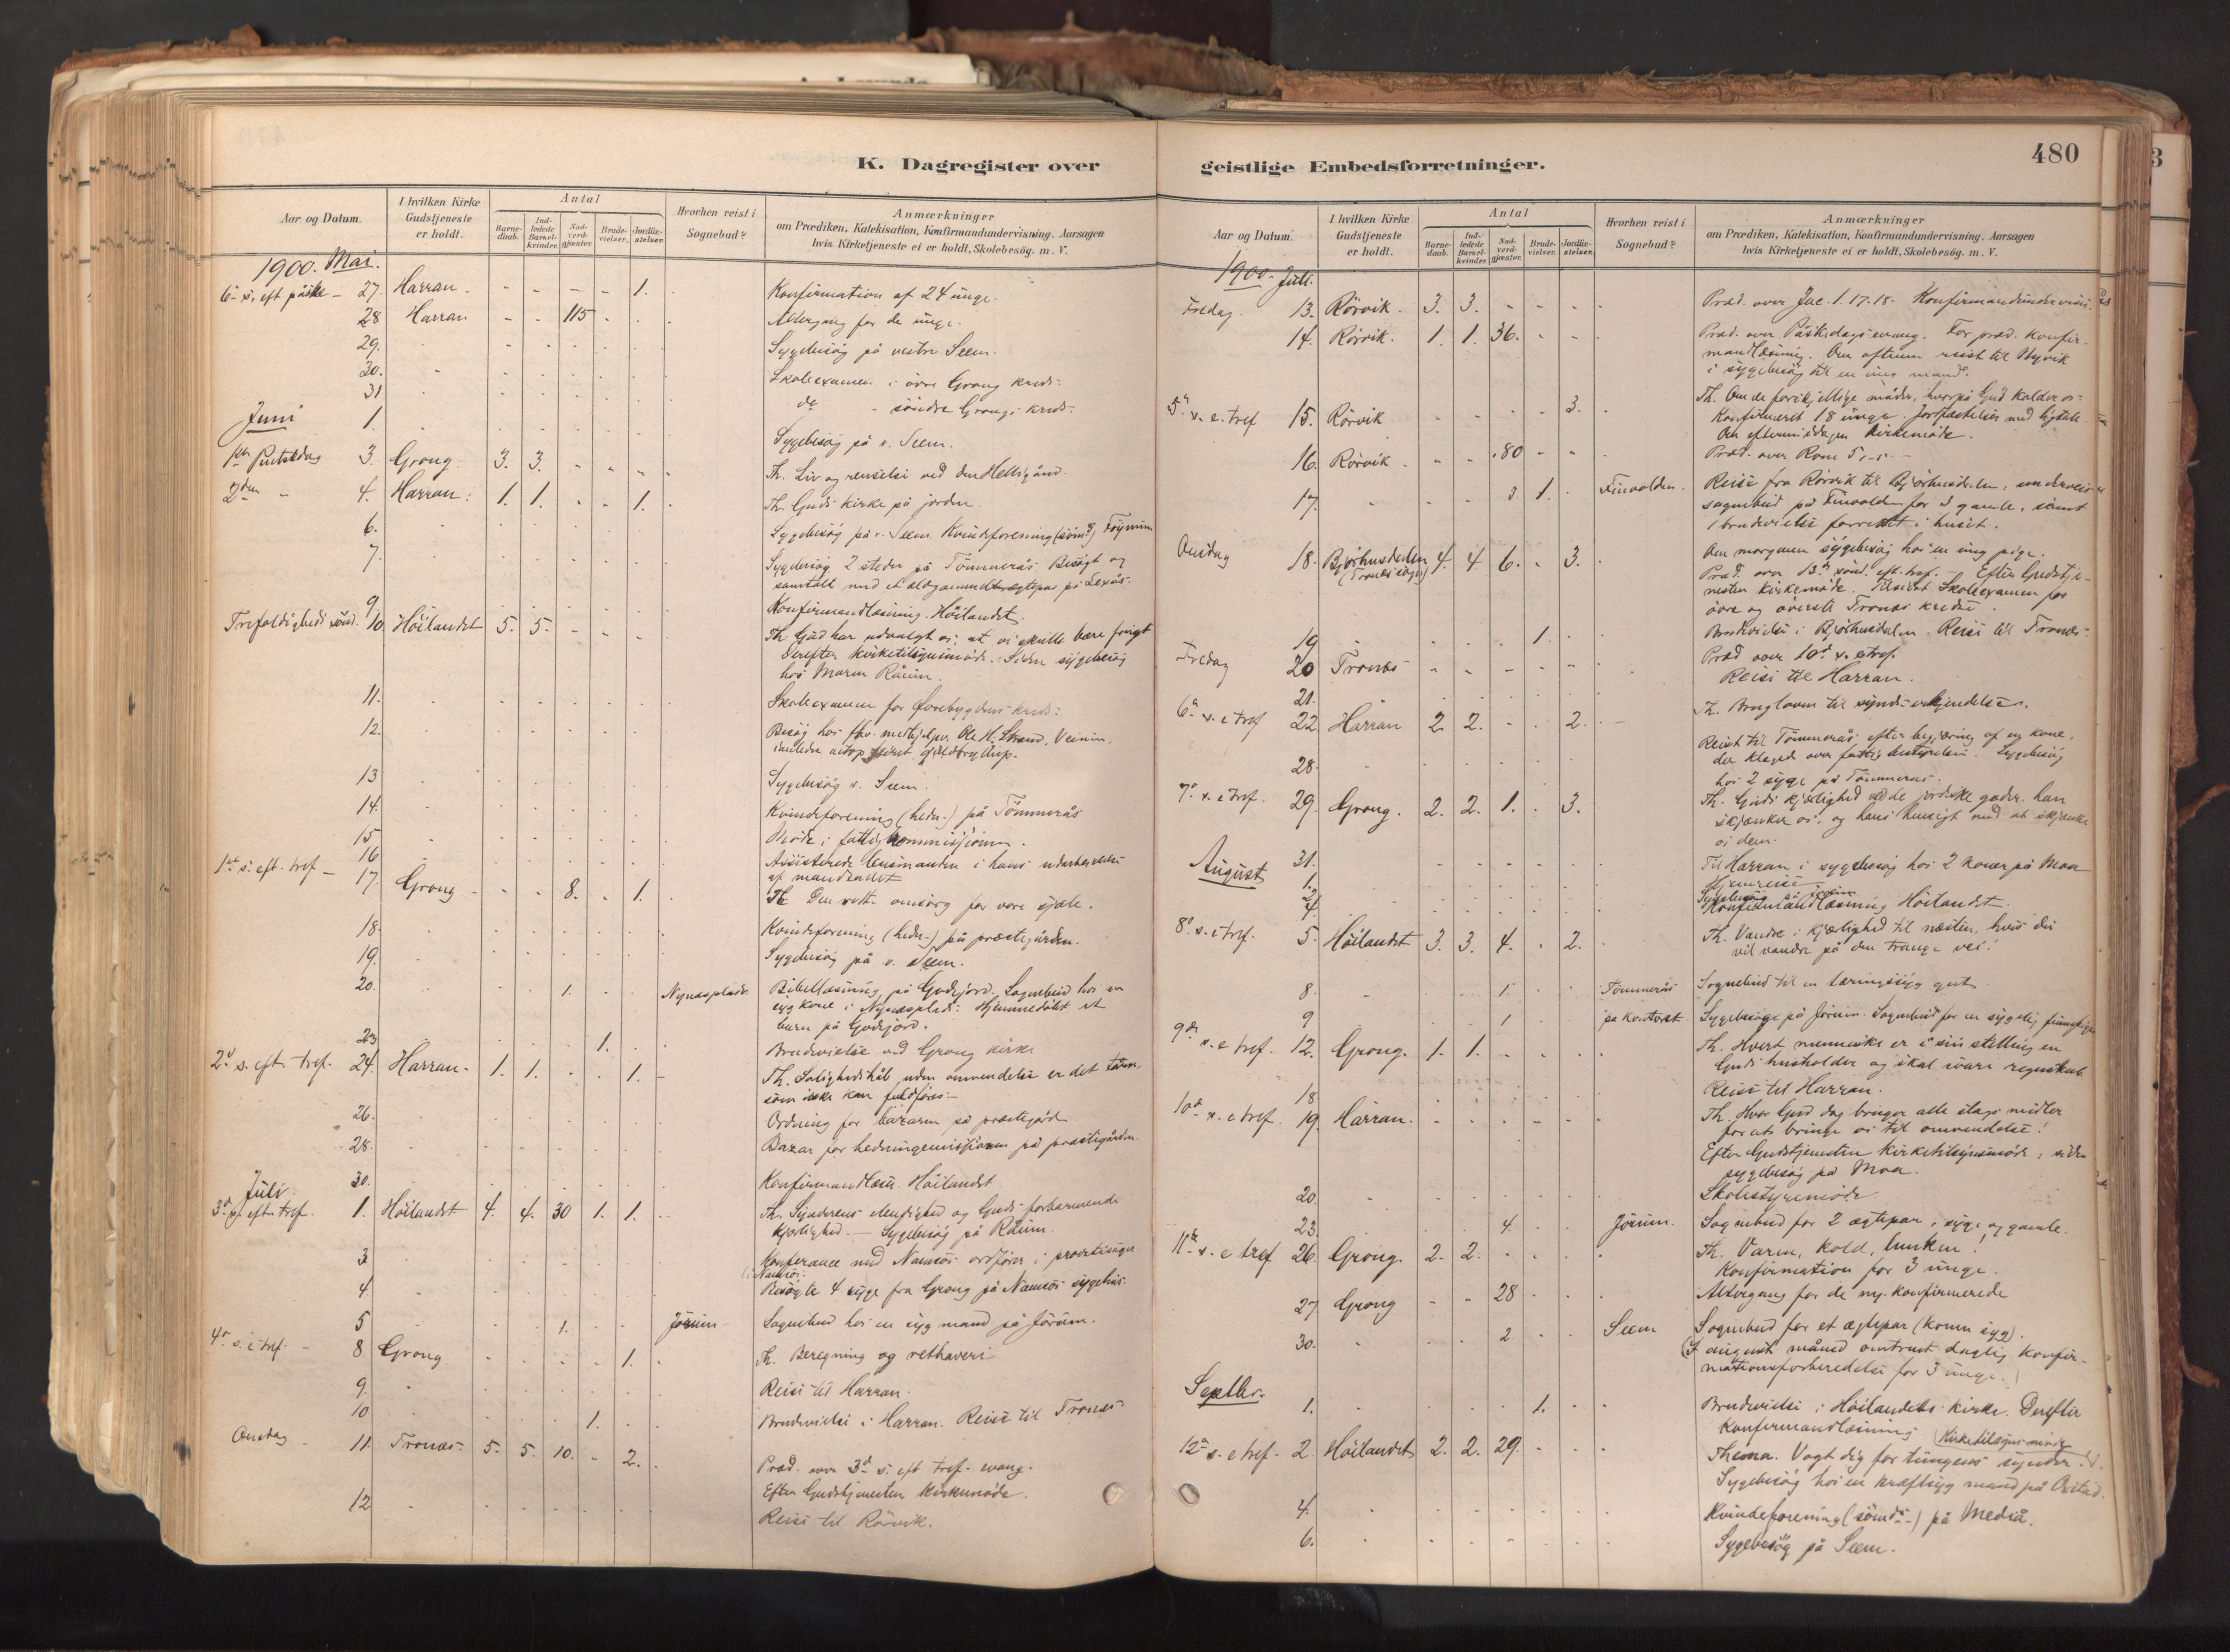 480
K. Dagregister over geistlige Embedsforretninger.
Aar og Datum. | I hvilken Kirke Gudstjeneste er holdt. | Antal | Barnedaab. | Indledede Barselkvinder. | Nadverdgjæster. | Brudevielser. | Jordfæstelser. | Hvorhen reist i Sognebud? | Anmærkninger om Prædiken, Katekisation, Konfirmandundervisning, Aarsagen hvis Kirketjeneste ei er holdt, Skolebesög. m. V.
1900. Mai.
6te s. eft påske - 27. Harran - - - - 1. Konfirmation af 24 unge.
28 Harran - - 115 - - Altergang for de unge.
29. Sygebesög på vestre Seem.
30. Skoleexamen i övre Grong kreds.
31 do - söndre Grongs kreds.
Juni
1. Sygebesög på v. Seem.
1ste Pintsedag 3. Grong 3. 3. - - - Th. Liv og renselse ved den Helligånd.
2den - 4. Harran. 1. 1. - - 1. Th. Guds kirke på jorden.
6. Sygebesög på v. Seem. Kvindeforening
7. Sygebesög 2 steder på Tömmerås. Besögt og
samtalt med et
9 Konfirmandlæsning Höilandet.
Trefoldigheds sönd. 10. Höilandet 5. 5. - - - Th. Gud har udvalgt os, at vi skulle bære frugt
Derefter kirketilsynsmöde. Siden sygebesög
hos Maren Råum.
11. Skoleexamen for kreds.
12. Besög hos fhv. medhjelper Ole H. Strand, Veium,
13 Sygebesög v. Seem.
14. Kvindeforening (hedn.) på Tömmerås
15 Möde i fattigkommissionen.
16 Assisterede lensmanden i hans
af mandtallet
1ste s. eft. tref - 17. Grong - - 8. - 1. Th. Den rette omsorg for vore sjæle.
18. Kvindeforening (hedn.) på præstegården.
19. Sygebesög på v. Seem.
20. 1. Nynæsplads. Bibellæsning på Godejord. Sognebud hos en
syg kone i Nynæsplads. Hjemmedöbt et
barn på Godejord.
23 1. Brudevielse ved Grong kirke
2d s. eft. tref. 24. Harran - 1. 1. - - 1. Th. Salighedshåb uden omvendelse er det tårn,
som ikke kan fuldföres -
26. Ordning for bazaren på præstegård
28. Bazar for hedningemissionen på præstegården.
30. Konfirmandlæsn. Höilandet
Juli
3d s. eft. tref. 1. Höilandet 4. 4. 30 1. 1. Th. Synderens elendighed og Guds forbarmende
kjærlighed. - Sygebesög på Råum.
3 Konferance med Namsos ordförer i
i Namsos.
4 Besögte 4 syge fra Grong på Namsos sygehus.
5 1. Jörum. Sognebud hos en syg mand på Jörum.
4de s. e tref. - 8 Grong - - - - 1. Th. Beregning og rethaveri
9. Reise til Harran.
10 1. Brudevielse i Harran. Reise til Tronæs
Onsdag - 11. Tronæs. 5. 5. 10. - 2. Præd. over 3d s. eft tref. evang.
Efter Gudstjenesten kirkemöde.
12 Reise til Rörvik.
Aar og Datum. | I hvilken Kirke Gudstjeneste er holdt. | Antal | Barnedaab. | Indledede Barselkvinder. | Nadverdgjæster. | Brudevielser. | Jordfæstelser. | Hvorhen reist i Sognebud? | Anmærkninger om Prædiken, Katekisation, Konfirmandundervisning, Aarsagen hvis Kirketjeneste ei er holdt, Skolebesög. m. V.
1900. Juli.
Fredag. 13. Rörvik. 3. 3. - - - Præd. over Jac. 1. 17.18. Konfirmandundervisn.
14. Rörvik. 1. 1. 36. - - Præd. over Påskedags evang. For præd. konfir-
mandlæsning. Om aftenen reist til
i sygebesög til en ung mand.
5te s. e. tref 15. Rörvik - - - - 3. Th. Om de forskjellige måder, hvorpå Gud kalder os.
Konfirmeret 18 unge. Jordfæstelse med
Om eftermiddagen kirkemöde.
16. Rörvik. - - 80 - - Præd. over Rom 5,
17. 3. 1. Finvolden. Reise fra Rörvik til Björhusdalen, underveis
sognebud på Finvolden for 3 gamle, samt
1 brudevielse forrettet i huset.
Onsdag 18. Björhusdalen 4. 4 6. - 3. Om morgenen sygebesög hos en ung pige.
(Tronæs sogn) Præd. over 13de sönd. eft. tref. - Efter Gudstje-
nesten kirkemöde. Tilsidst Skoleexamen for
övre og överste Tronæs kredse.
19 1. Brudevielse i Björhusdalen. Reise til Tronæs.
Fredag 20 Tronæs - - - - - Præd over 10d s. e tref.
21. Reise til Harran.
6te s. e tref 22. Harran 2 2. - - 2. Th. til synds-erkjendelse.
28. Reist til Tömmerås efter begjæring af en kone,
der klaged over fattigbestyrelsen. Sygebesög
hos 2 syge på Tömmerås.
7de s. e tref. 29. Grong. 2. 2. 1. - 3. Th. Guds kjærlighed de jordiske goder han
skjænker os, og hans hensigt med at skjænke
os dem.
31. Til Harran i sygebesög hos 2 koner på Moa
August 1. Hjemreise
2. Sygebesög på Jörum
4. Konfirmandlæsning Höilandet.
8de s. e tref. 5. Höilandet 3. 3. 4. - 2. Th. Vandre i kjærlighed til næsten, hvis du
vil vandre på den trange vei!
8. 1. Tömmerås Sognebud til en tæringssyg gut
9 1. på kontoret Sygebesöge på Jörum. Sognebud for en sygelig
9de s. e tref. 12. Grong. 1. 1. Th. Hvert menneske er i sin stilling en
Guds husholder og skal svare regnskab.
18. Reise til Harran.
10de s. e tref. 19. Harran. - - - - - Th. Hvor Gud dog bruger alle slags midler
for at bringe os til omvendelse!
Efter Gudstjenesten kirketilsynsmöde, siden
sygebesög på Moa.
20. Skolestyremöde
23. 4. Jörum. Sognebud for 2 ægtepar, syge og gamle.
11te s. e tref 26. Grong. 2. 2. - - - Th. Varm, kold, lunken!
Konfirmation for 3 unge.
27 Grong - - 28 - - Altergang for de ny-konfirmerede
30. 2 Seem Sognebud for et ægtepar (konen syg).
(I august måned omtrent daglig konfir-
mationsforberedelse for 3 unge.)
Septbr.
1. 1. Brudevielse i Höilandets kirke. Derefter
konfirmandlæsning Kirketilsynsmöde
12te s. e tref. 2. Höilandet 2. 2. 29. - - Thema. Vogt dig for tungens synder.
Sygebesög hos en kræftsyg mand på
4. Kvindeforening på Mediå.
6. Sygebesög på Seem.